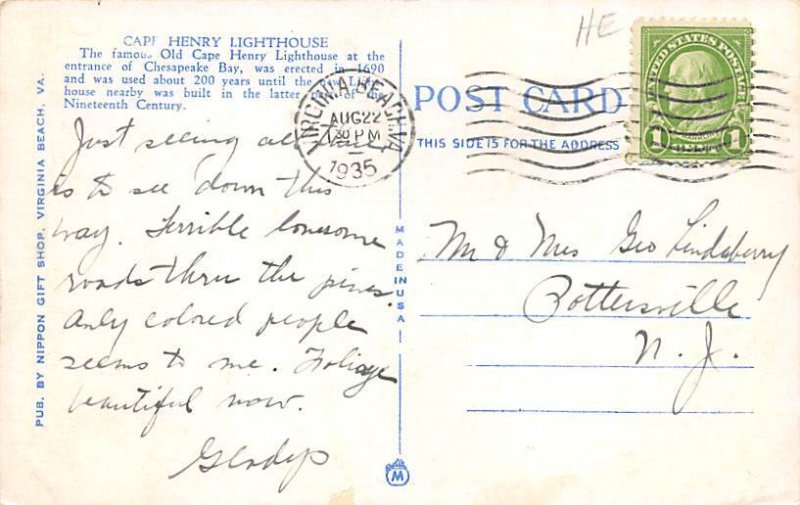 HE
CAPE HENRY LIGHTHOUSE
The famous Old Cape Henry Lighthouse at the
entrance of Chesapeake Bay, was erected in 1690
and was used about 200 years until the Light-
house nearby was built in the latter part of the
Nineteenth Century.
PUB. BY NIPPON GIFT SHOP, VIRGINIA BEACH, VA.
VIRGINIA BEACH, VA.
AUG 22
130 PM
1935
UNITED STATES POSTAGE
1 1
POST CARD
THIS SIDE IS FOR THE ADDRESS
Just seeing all there
is to see down this
way. Terrible lonesome
roads thru the pines.
Only colored people
seems to me. Foliage
beautiful now.
Gladys
MADE IN USA
M
Mr & Mrs Geo Lindaberry
Pottersville
N. J.